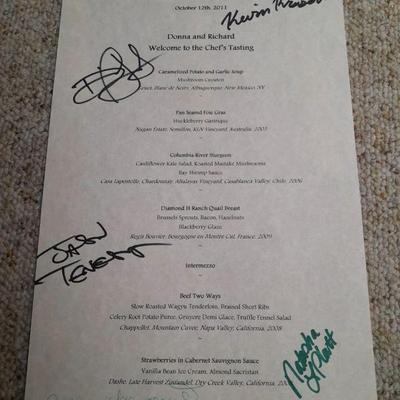 October 12th, 2011
Kevin
Donna and Richard
Welcome to the Chef's Tasting
Caramelized Potato and Garlic Soup
Mushroom Crouton
Blanc de Noirs, Albuquerque, New Mexico, NV
~
Pan Seared Foie Gras
Huckleberry Gastrique
Nugan Estate, Semillon, KLN Vineyard, Australia, 2005
~
Columbia River Sturgeon
Cauliflower Kale Salad, Roasted Maitake Mushrooms
Bay Shrimp Sauce
Casa Lapostolle, Chardonnay, Atalayas Vineyard, Casablanca Valley, Chile, 2006
~
Diamond H Ranch Quail Breast
Brussels Sprouts, Bacon, Hazelnuts
Blackberry Glaze
Regis Bouvier, Bourgogne en Montre Cul, France, 2009
~
Intermezzo
~
Beef Two Ways
Slow Roasted Wagyu Tenderloin, Braised Short Ribs
Celery Root Potato Puree, Gruyere Demi Glace, Truffle Fennel Salad
Chappellet, Mountain Cuvee, Napa Valley, California, 2008
~
Natasha
Strawberries in Cabernet Sauvignon Sauce
Vanilla Bean Ice Cream, Almond Sacristan
Dashe, Late Harvest Zinfandel, Dry Creek Valley, California,